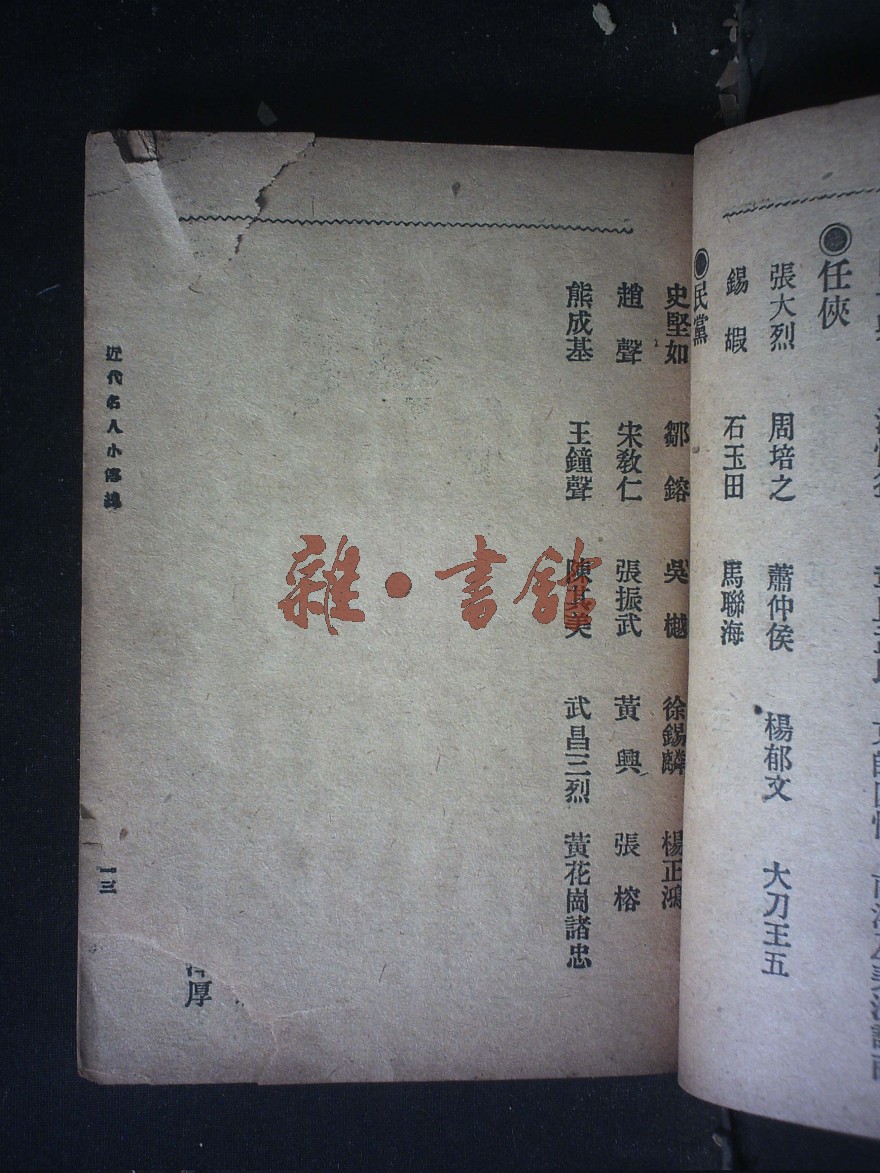 ●任俠
張大烈 周培之 蕭仲侯 楊郁文 大刀王五
錫嘏 石玉田 馬聯海
●民黨
史堅如 鄒鎔 吳樾 徐錫麟 楊正鴻
趙聲 宋敎仁 張振武 黃興 張榕
熊成基 王鐘聲 陳其美 武昌三烈 黃花崗諸忠
厚
近代名人小傳
一三
雜·書館